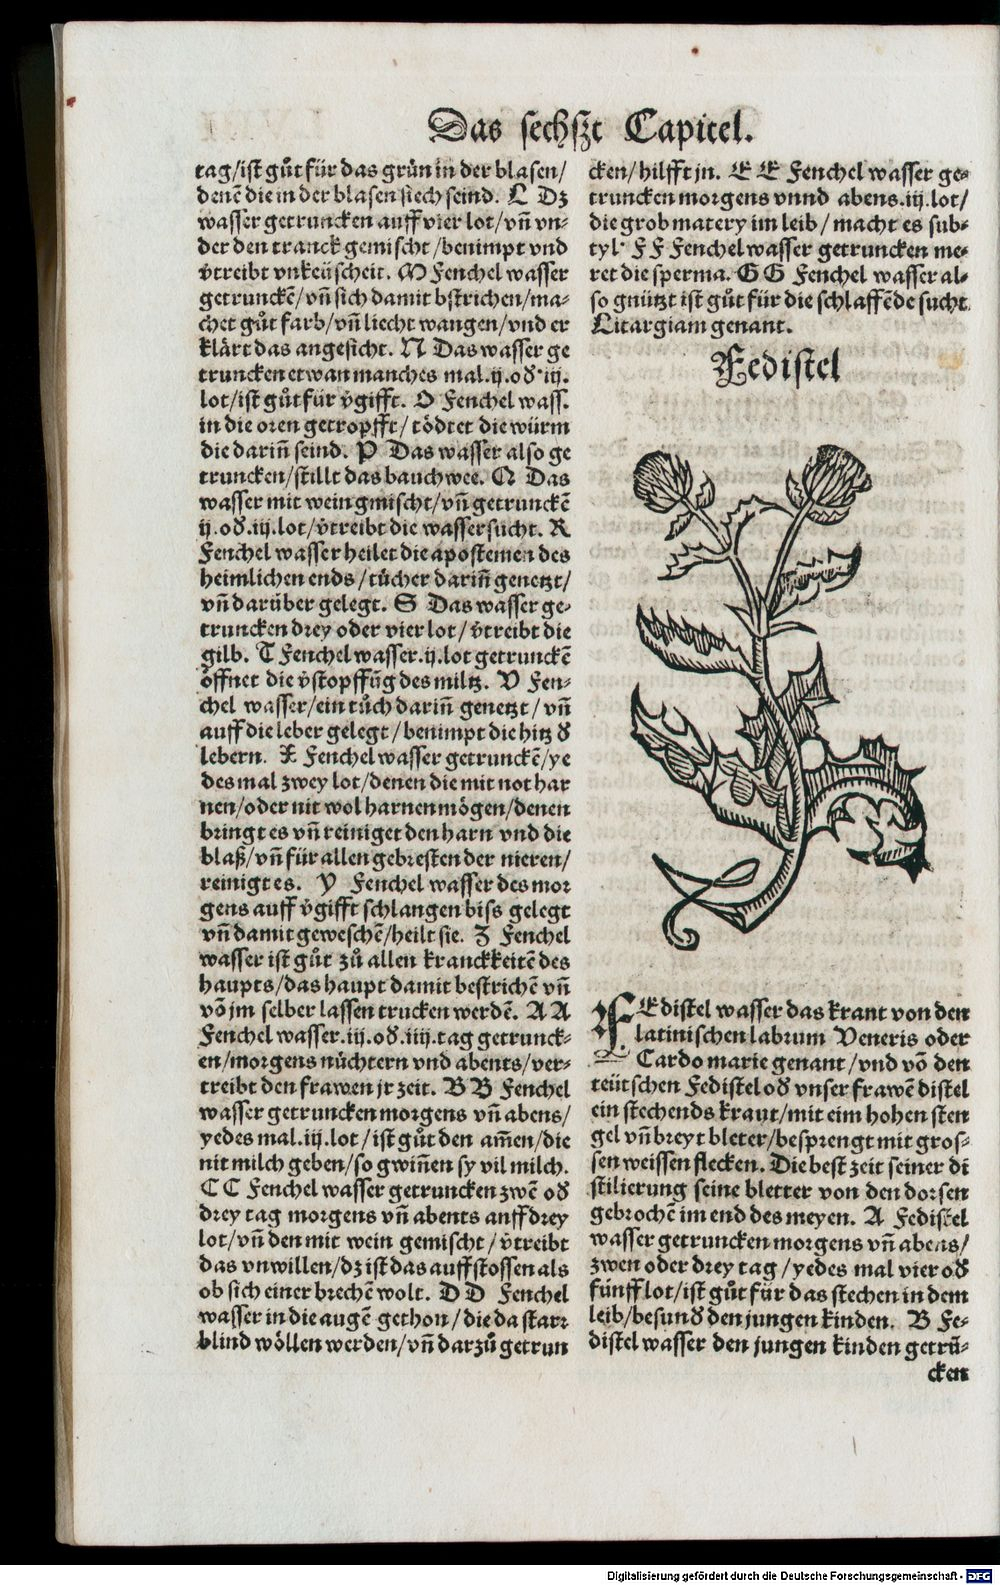 Das sechszt Capitel.
tag/ist gůt für das grün in der blasen/
denē die in der blasen siech seind. L Dz
wasser getruncken auff vier lot/vñ vn-
der den tranck gemischt/benimpt vnd
v̊treibt vnkeüscheit. M Fenchel wasser
getrunckē/vñ sich damit bstrichen/ma-
chet gůt farb/vñ liecht wangen/vnd er
klärt das angesicht. N Das wasser ge
truncken etwan manches mal.ij.od̕ iij.
lot/ist gůt für v̊gifft. O Fenchel wass.
in die oren getropfft/tödtet die würm
die dariñ seind. P Das wasser also ge
truncken/stillt das bauchwee. Q Das
wasser mit wein gmischt/vñ getrunckē
ij.od̕.iij.lot/v̊treibt die wassersucht. R
Fenchel wasser heilet die apostemen des
heimlichen ends/tücher dariñ genetzt/
vñ darüber gelegt. S Das wasser ge-
truncken drey oder vier lot/v̊treibt die
gilb. T Fenchel wasser.ij.lot getrunckē
öffnet die v̊stopffūg des miltz. V Fen-
chel wasser/ein tůch dariñ genetzt/vñ
auff die leber gelegt/benimpt die hitz d̕
lebern. X Fenchel wasser getrunckē/ye
des mal zwey lot/denen die mit not har
nen/oder nit wol harnen mögen/denen
bringt es vñ reiniget den harn vnd die
blaß/vñ für allen gebresten der nieren/
reinigt es. Y Fenchel wasser des mor
gens auff v̊gifft schlangen biss gelegt
vñ damit geweschē/heilt sie. Z Fenchel
wasser ist gůt zů allen kranckkeitē des
haupts/das haupt damit bestrichē vñ
vō jm selber lassen trucken werdē. A A
Fenchel wasser.iij.od̕.iiij.tag getrunck-
en/morgens nüchtern vnd abents/ver-
treibt den frawen jr zeit. B B Fenchel
wasser getruncken morgens vñ abens/
yedes mal.iij.lot/ist gůt den am̄en/die
nit milch geben/so gwiñen sy vil milch.
C C Fenchel wasser getruncken zwē od̕
drey tag morgens vñ abents auff drey
lot/vñ den mit wein gemischt/v̊treibt
das vnwillen/dz ist das auffstossen als
ob sich einer brechē wolt. D D Fenchel
wasser in die augē gethon/die da starr
blind wöllen werden/vñ darzů getrun
cken/hilfft jn. E E Fenchel wasser ge-
truncken morgens vnnd abens.iij.lot/
die grob matery im leib/macht es sub-
tyl. F F Fenchel wasser getruncken me-
ret die sperma. G G Fenchel wasser al-
so gnützt ist gůt für die schlaffēde sucht
Litargiam genant.
Fedistel
FEdistel wasser das kraut von den
latinischen labrum Veneris oder
Cardo marie genant/vnd vō den
teütschen Fedistel od̕ vnser frawē distel
ein stechends kraut/mit eim hohen sten
gel vñ breyt bleter/besprengt mit gros-
sen weissen flecken. Die best zeit seiner di
stilierung seine bletter von den dorsen
gebrochē im end des meyen. A Fedistel
wasser getruncken morgens vñ abens/
zwen oder drey tag/yedes mal vier od̕
fünff lot/ist gůt für das stechen in dem
leib/besund̕ den jungen kinden. B Fe-
distel wasser den jungen kinden getrū-
cken
Digitalisierung gefördert durch die Deutsche Forschungsgemeinschaft - DFG